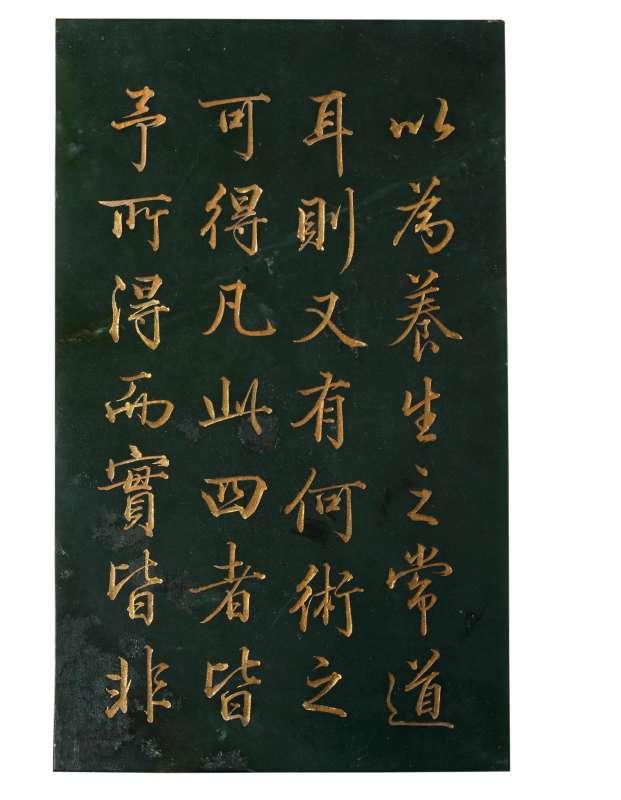 以為養生之常道
耳則又有何術之
可得凡此四者皆
予所得而實皆非